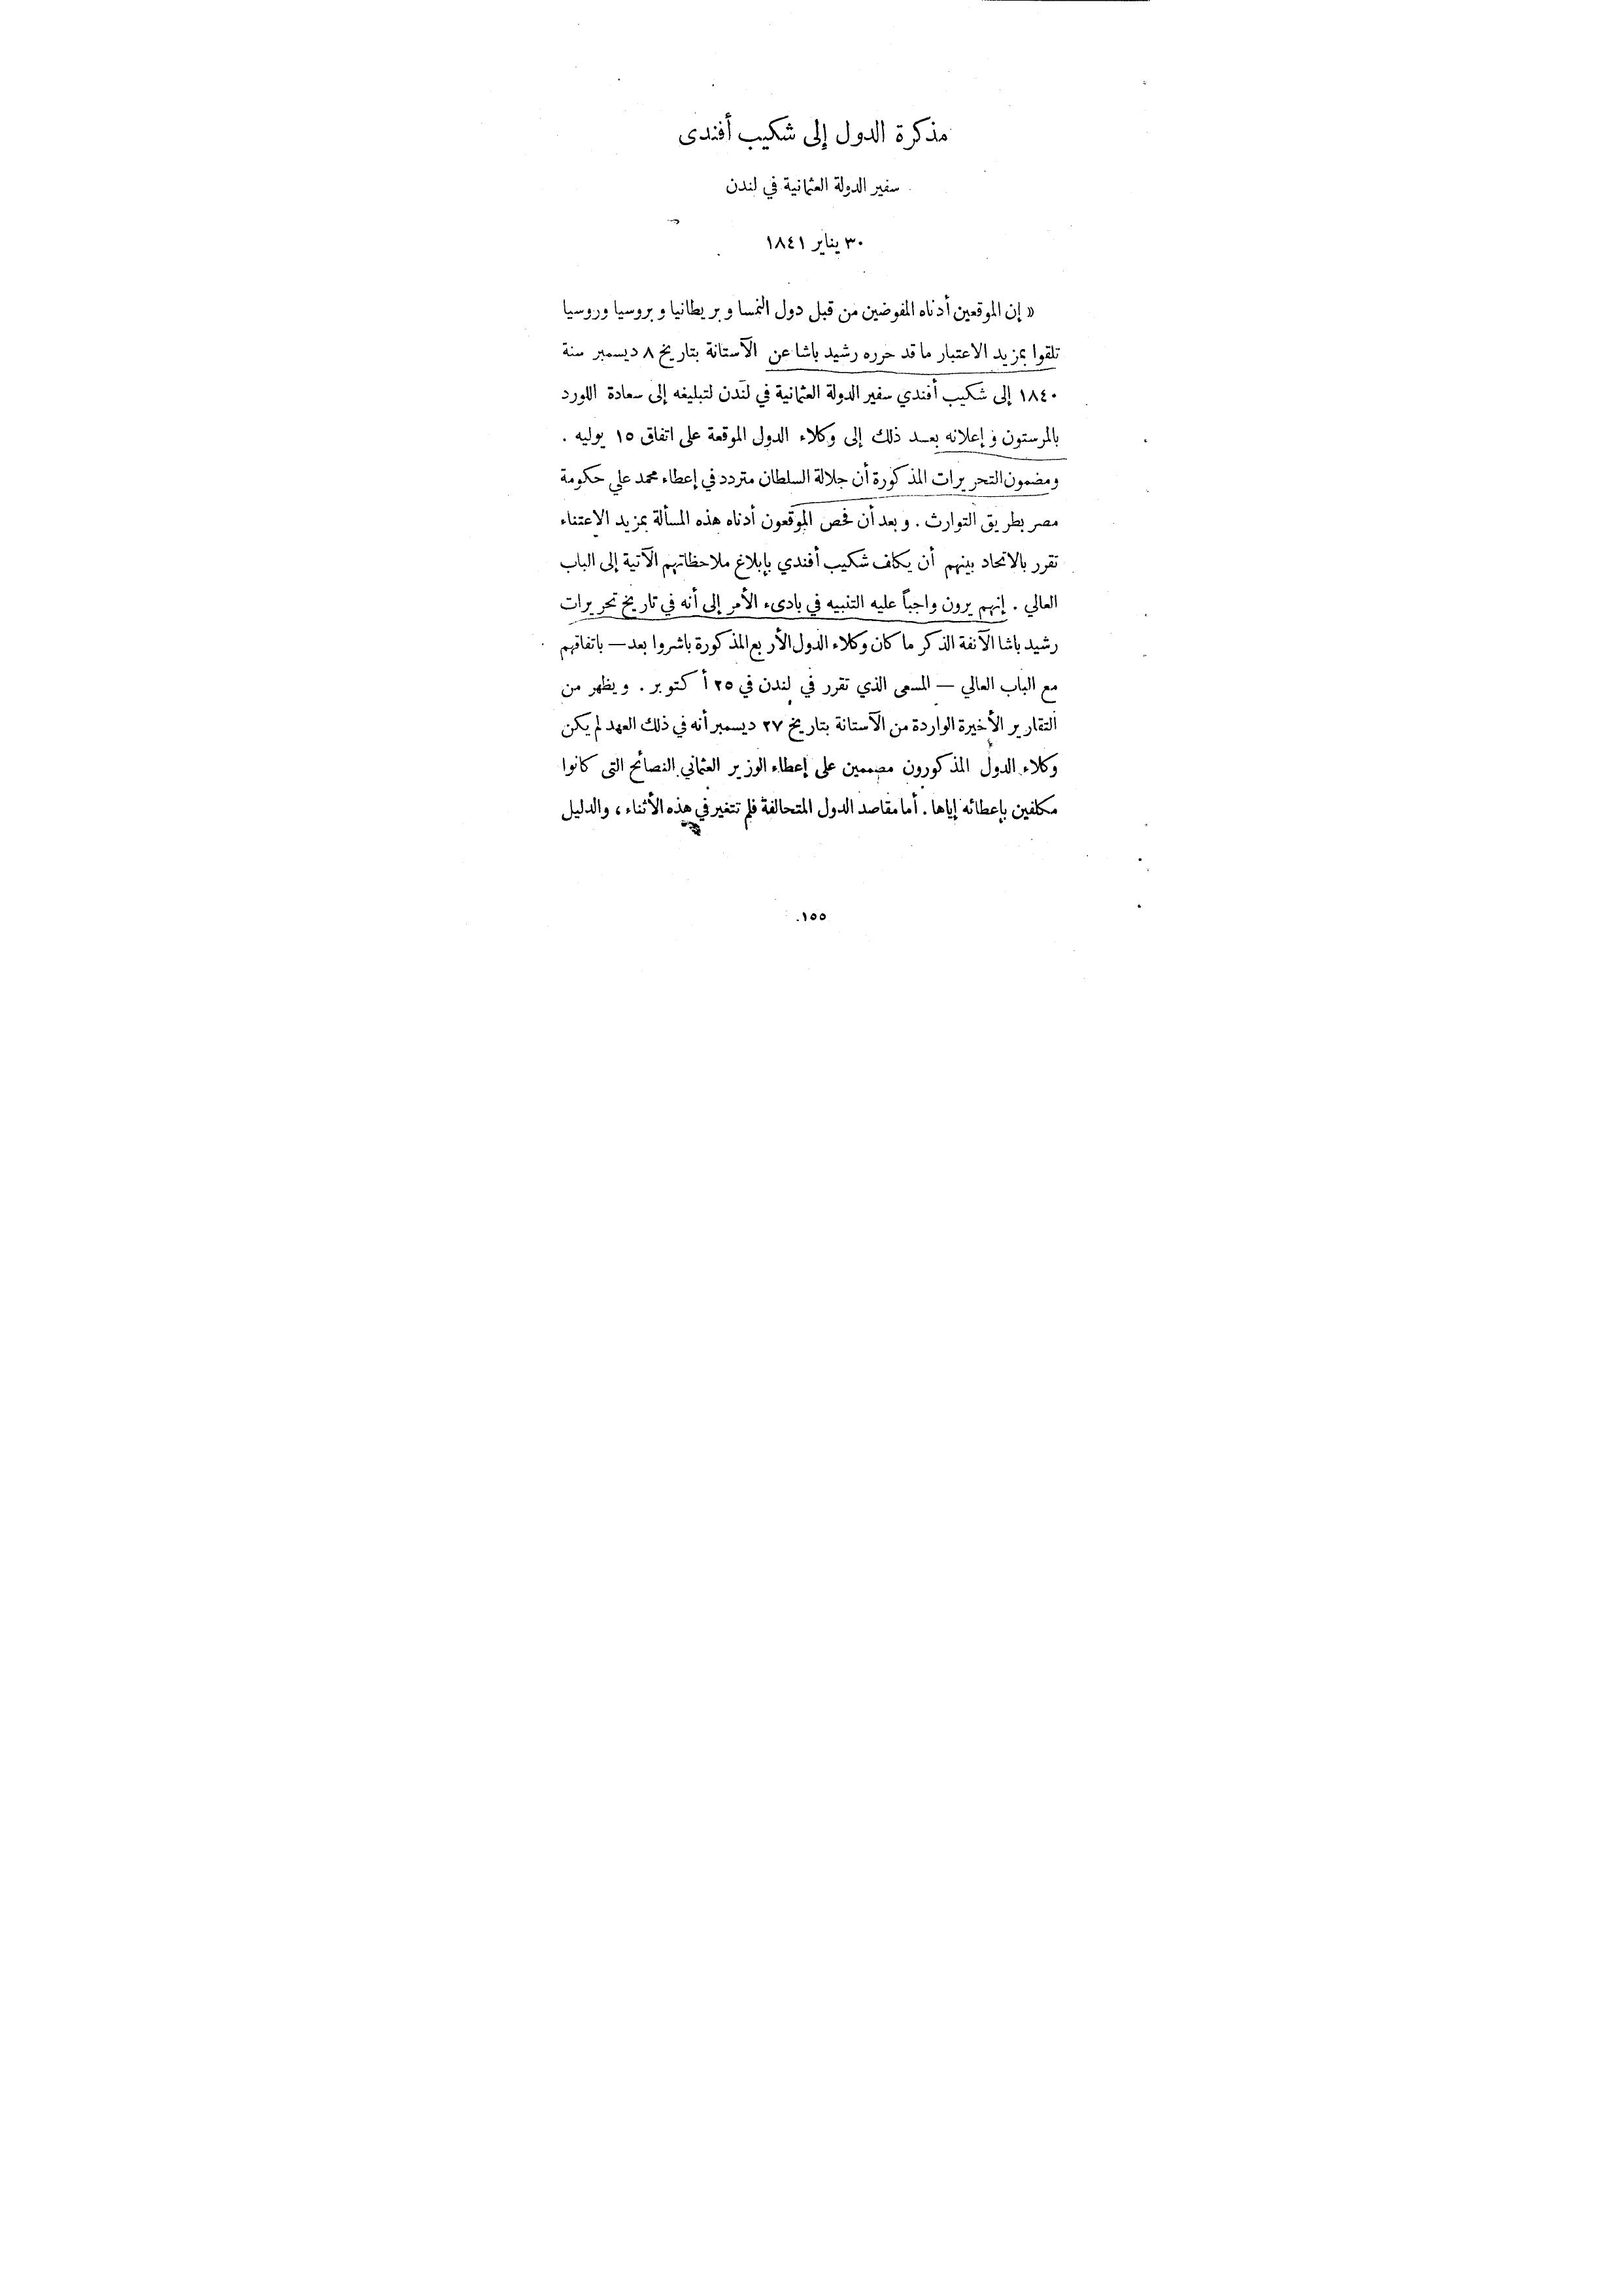 مذكرة الدول إلى شكيب أفندى
سفير الدولة العثمانية في لندن
٣٠ يناير ١٨٤١
« إن الموقعين أدناه المفوضين من قبل دول النمسا و بريطانيا و بروسيا وروسيا
تلقوا بمزيد الاعتبار ما قد حرره رشيد باشا عن الآستانة بتاريخ ٨ ديسمبر سنة
١٨٤٠ إلى شكيب أفندي سفير الدولة العثمانية في لندن لتبليغه إلى سعادة اللورد
بالمرستون و إعلانه بعد ذلك إلى وكلاء الدول الموقعة على اتفاق ١٥ يوليه .
ومضمون التحريرات المذكورة أن جلالة السلطان متردد في إعطاء محمد علي حكومة
مصر بطريق التوارث . و بعد أن فحص الموقعون أدناه هذه المسألة بمزيد الاعتناء
تقرر بالاتحاد بينهم أن يكلف شكيب أفندي بإبلاغ ملاحظاتهم الآتية إلى الباب
العالي . إنهم يرون واجباً عليه التنبيه في بادىء الأمر إلى أنه في تاريخ تحريرات
رشيد باشا الآنفة الذكر ما كان وكلاء الدول الأربع المذكورة باشروا بعد — باتفاقهم
مع الباب العالي — المسعى الذي تقرر في لندن في ٢٥ أكتوبر . ويظهر من
التقارير الأخيرة الواردة من الآستانة بتاريخ ٢٧ ديسمبر أنه في ذلك العهد لم يكن
وكلاء الدول المذكورون مصممين على إعطاء الوزير العثماني النصائح التى كانوا
مكلفين بإعطائه إياها . أما مقاصد الدول المتحالفة فلم تتغير في هذه الأثناء ، والدليل
١٥٥